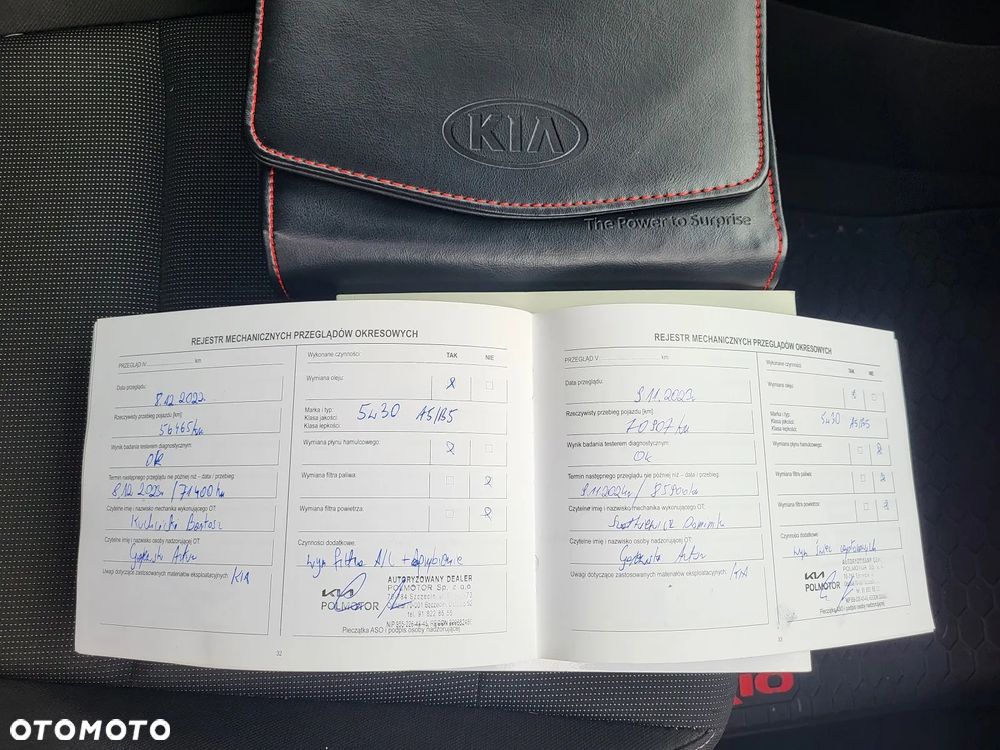 KIA
The Power to Surprise
REJESTR MECHANICZNYCH PRZEGLĄDÓW OKRESOWYCH
PRZEGLĄD IV km
Data przeglądu:
8.12.2022
Rzeczywisty przebieg pojazdu [km]
56465 km
Wynik badania testerem diagnostycznym:
OK
Termin następnego przeglądu nie później niż – data / przebieg:
8.12.2023r / 71400 km
Czytelne imię i nazwisko mechanika wykonującego OT:
Bartosz
Czytelne imię i nazwisko osoby nadzorującej OT:
Artur
Uwagi dotyczące zastosowanych materiałów eksploatacyjnych: KIA
Wykonane czynności: TAK NIE
Wymiana oleju:
Marka i typ: 5W30 A5/B5
Klasa jakości:
Klasa lepkości:
Wymiana płynu hamulcowego:
Wymiana filtra paliwa:
Wymiana filtra powietrza:
Czynności dodatkowe:
wym filtra A/C + odgrzybianie
AUTORYZOWANY DEALER
POLMOTOR Sp. z o.o.
KIA
POLMOTOR
tel. 91 822 85 55
Pieczątka ASO i podpis osoby nadzorującej
32
REJESTR MECHANICZNYCH PRZEGLĄDÓW OKRESOWYCH
PRZEGLĄD V km
Data przeglądu:
9.11.2023r
Rzeczywisty przebieg pojazdu [km]
70907 km
Wynik badania testerem diagnostycznym:
OK
Termin następnego przeglądu nie później niż – data / przebieg:
9.11.2024r / 85900 km
Czytelne imię i nazwisko mechanika wykonującego OT:
Dominik
Czytelne imię i nazwisko osoby nadzorującej OT:
Artur
Uwagi dotyczące zastosowanych materiałów eksploatacyjnych: KIA
Wykonane czynności: TAK NIE
Wymiana oleju:
Marka i typ: 5W30 A5/B5
Klasa jakości:
Klasa lepkości:
Wymiana płynu hamulcowego:
Wymiana filtra paliwa:
Wymiana filtra powietrza:
Czynności dodatkowe:
wym świec zapłonowych
AUTORYZOWANY
POLMOTOR Sp. z o.o.
KIA
POLMOTOR
Pieczątka ASO i podpis osoby nadzorującej
33
OTOMOTO